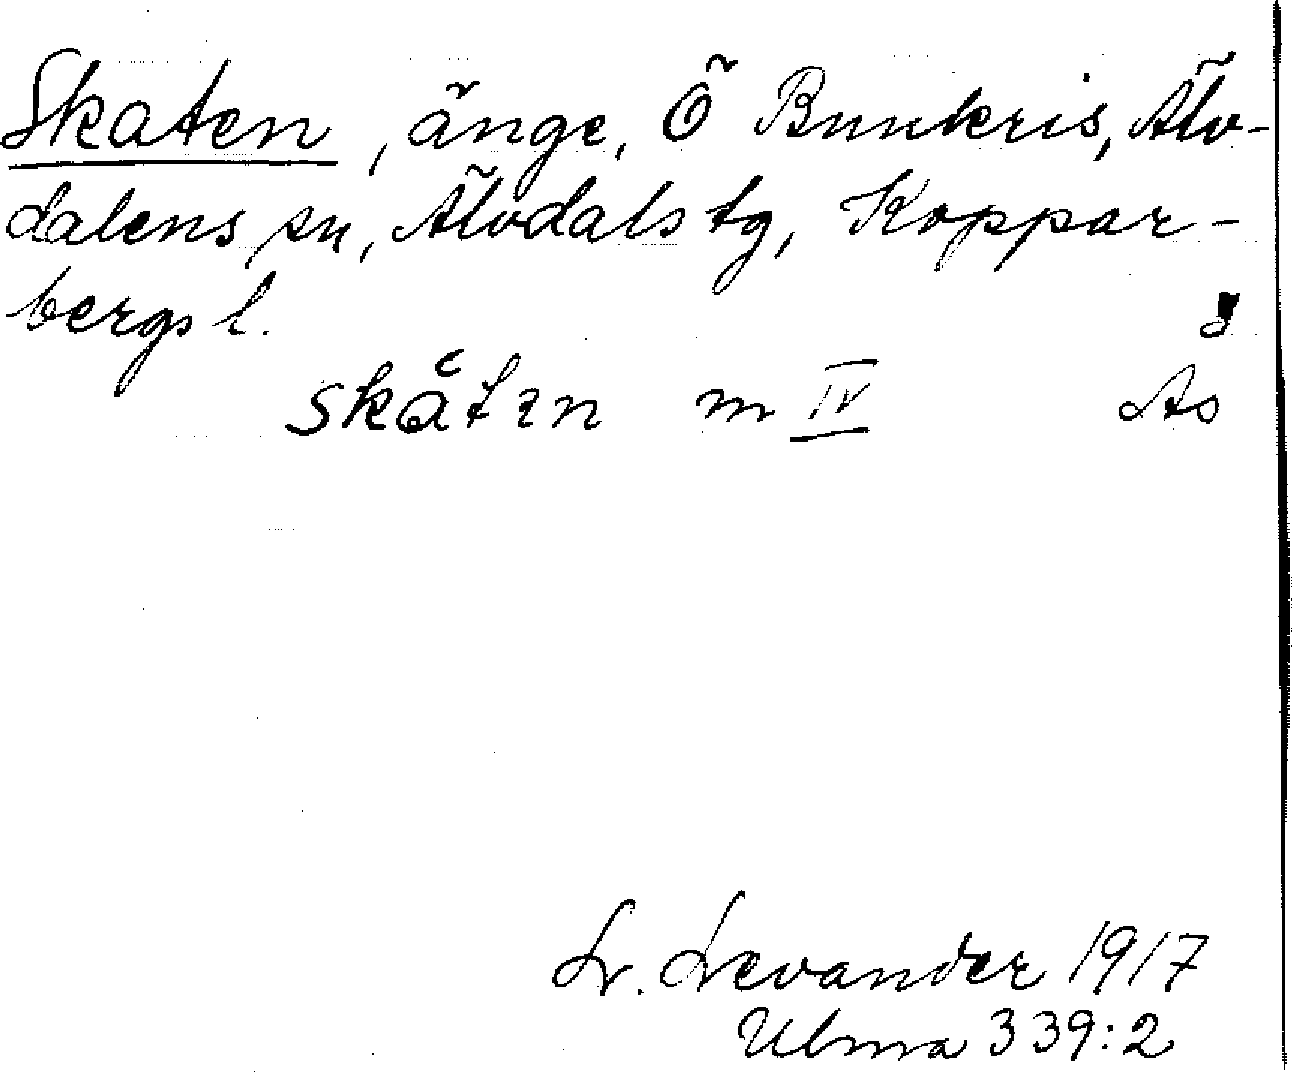 Skaten, änge, Ö Bunkris, Älv-
dalens sn, Älvdals tg, Koppar-
bergs l.
skåtɐn m IV Ås
L. Levander 1917
Ulma 339:2